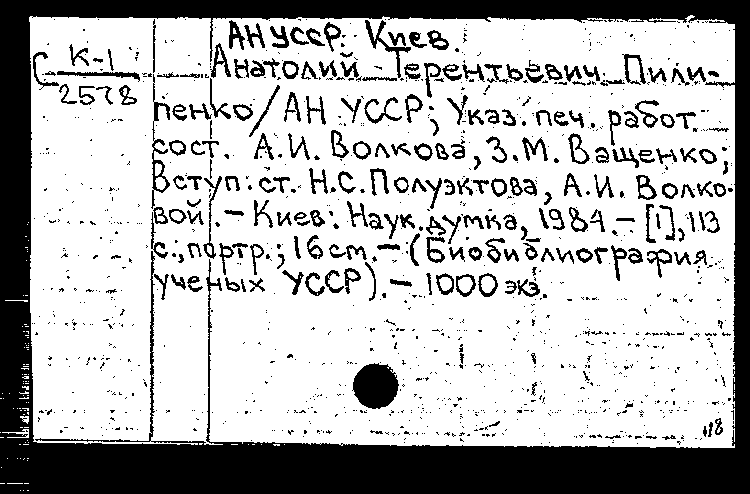 АН УССР. Киев.
С К-1
2578
Анатолий Терентьевич Пили-
пенко / АН УССР; Указ. печ. работ
сост. А.И. Волкова, З.М. Ващенко;
Вступ. ст. Н.С. Полуэктова, А.И. Волко-
вой. – Киев: Наук. думка, 1984. – [1], 113
с., портр.; 16 см. – (Биобиблиография
ученых УССР). – 1000 экз.
118